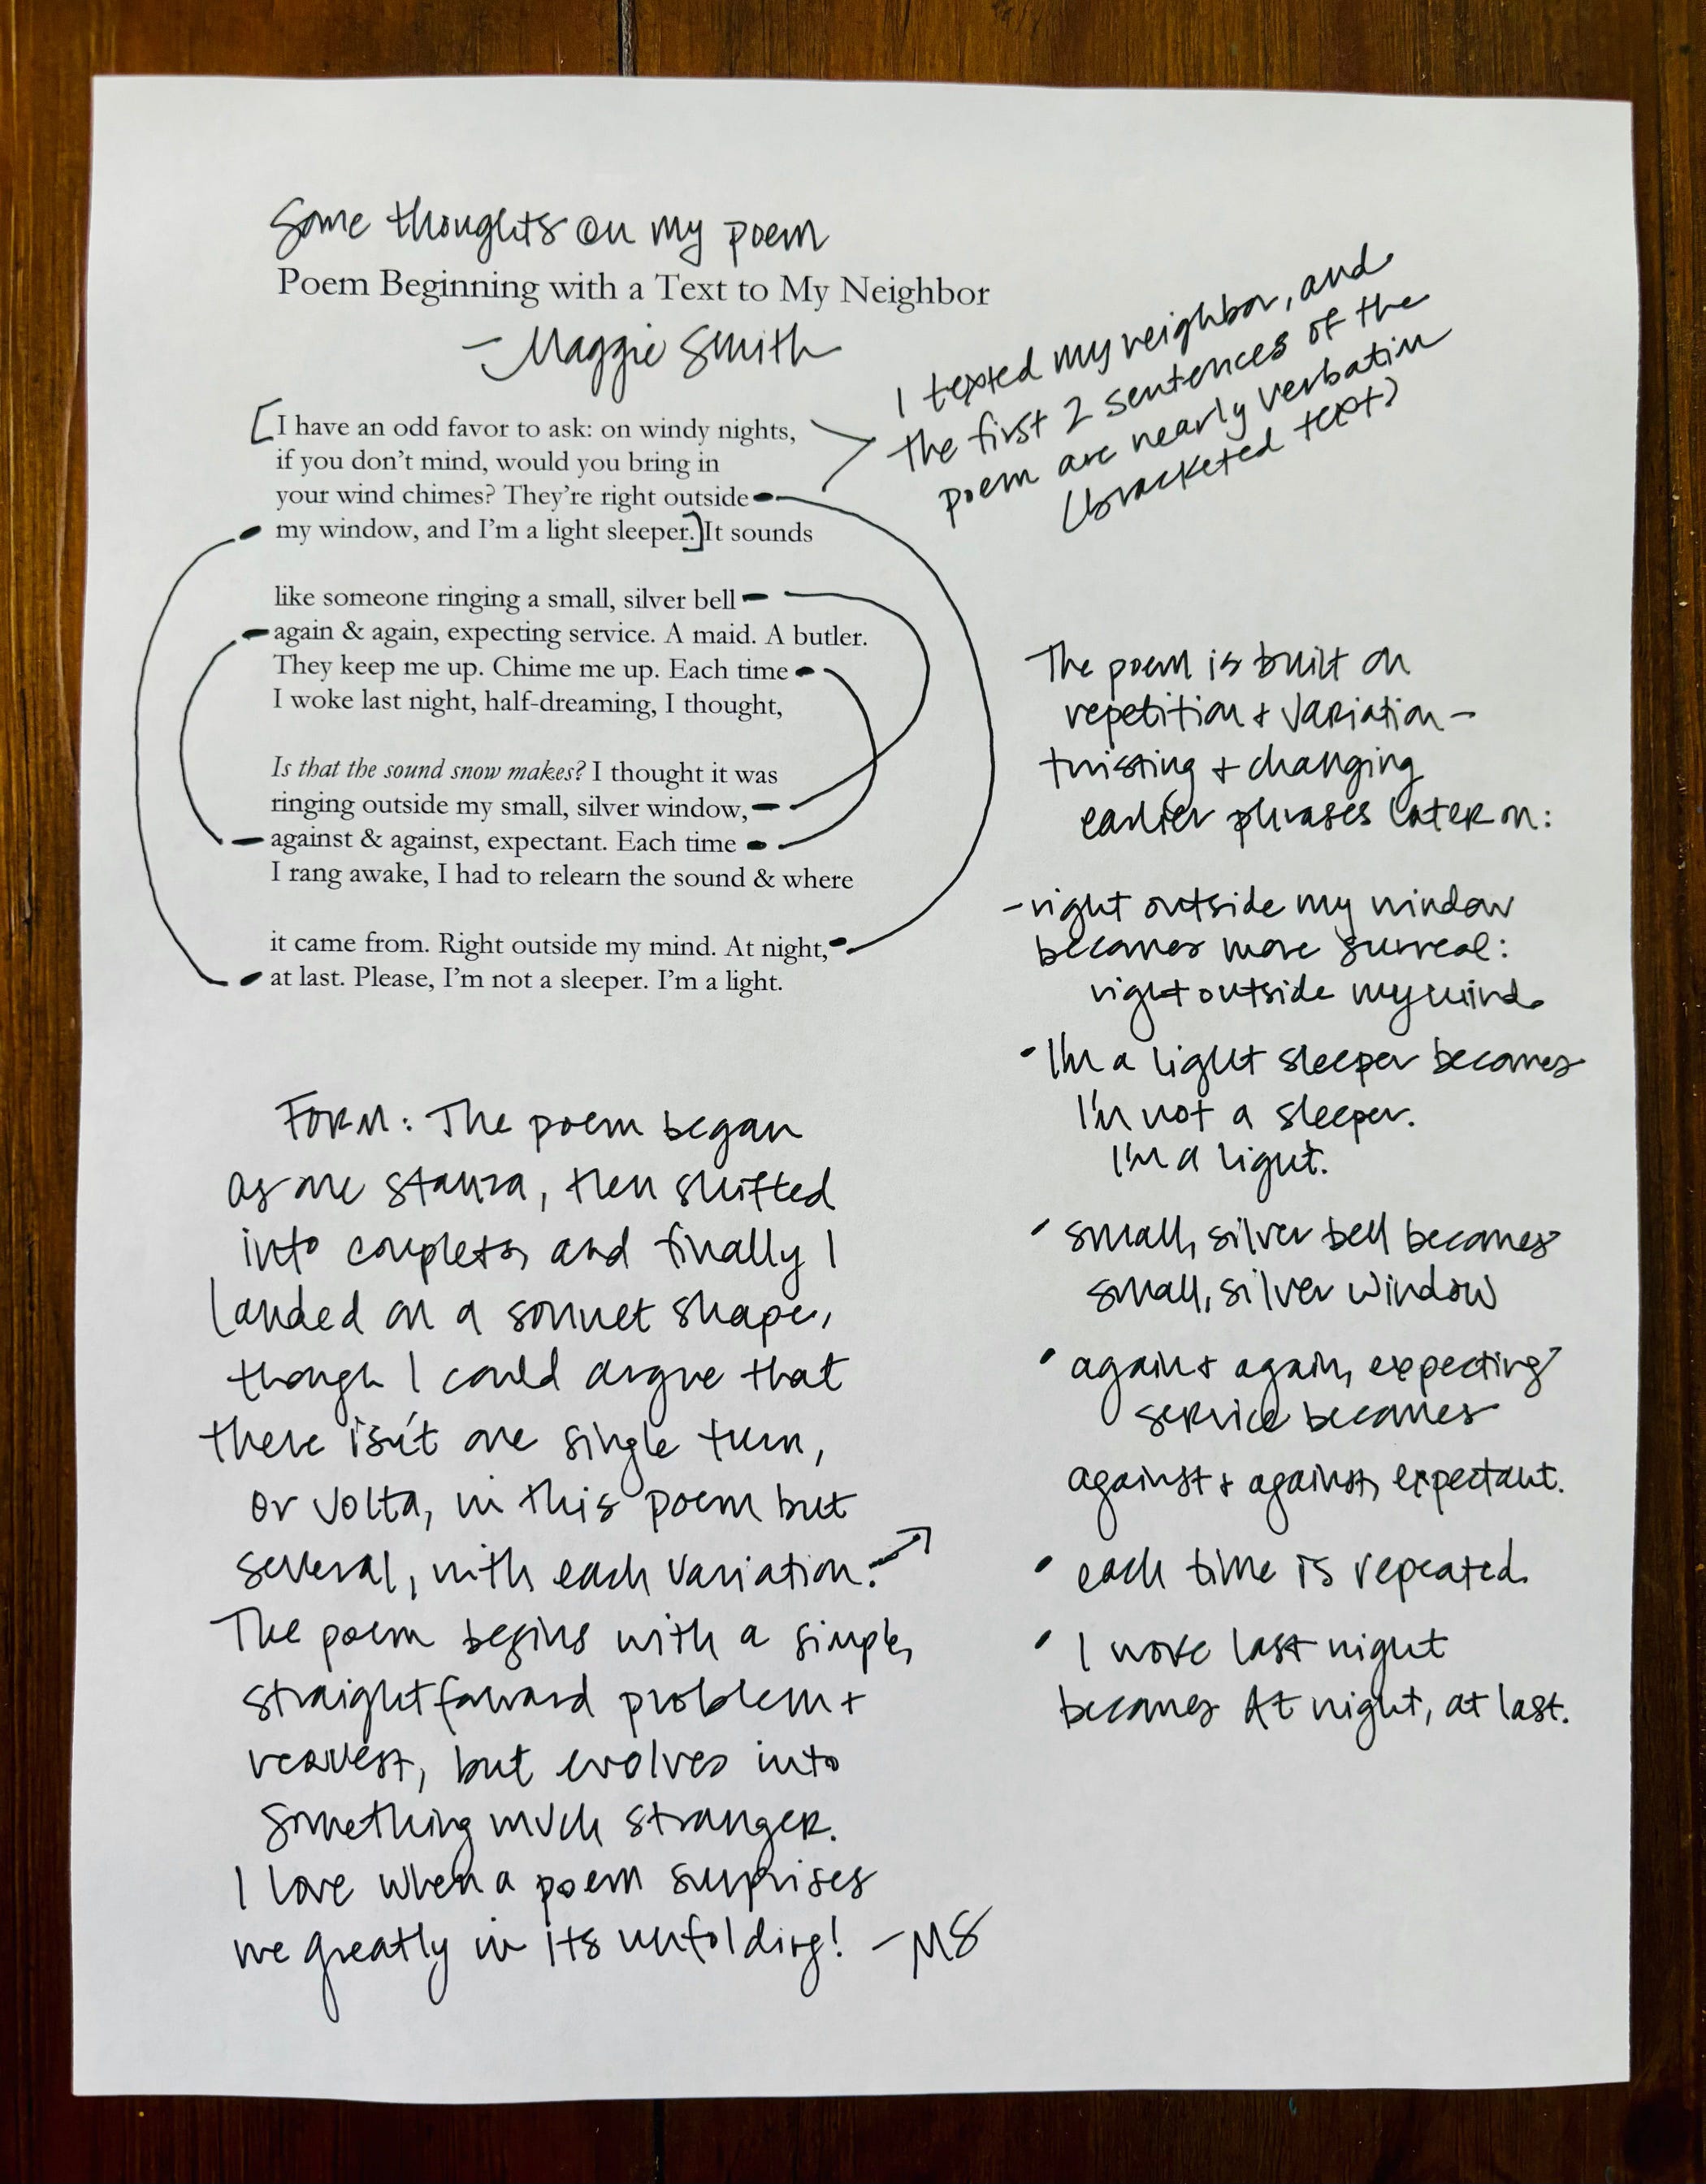 Some thoughts on my poem
Poem Beginning with a Text to My Neighbor
- Maggie Smith
[I have an odd favor to ask: on windy nights,
if you don't mind, would you bring in
your wind chimes? They're right outside
my window, and I'm a light sleeper.] It sounds
like someone ringing a small, silver bell
again & again, expecting service. A maid. A butler.
They keep me up. Chime me up. Each time
I woke last night, half-dreaming, I thought,
Is that the sound snow makes? I thought it was
ringing outside my small, silver window,
against & against, expectant. Each time
I rang awake, I had to relearn the sound & where
it came from. Right outside my mind. At night,
at last. Please, I'm not a sleeper. I'm a light.
I texted my neighbor, and
the first 2 sentences of the
poem are nearly verbatim
(bracketed text)
The poem is built on
repetition + variation -
twisting + changing
earlier phrases later on:
- right outside my window
becomes more surreal:
right outside my mind.
• I'm a light sleeper becomes
I'm not a sleeper.
I'm a light.
• small, silver bell becomes
small, silver window
• again + again, expecting
service becomes
against + against, expectant.
• each time is repeated.
• I woke last night
becomes At night, at last.
FORM: The poem began
as one stanza, then shifted
into couplets, and finally I
landed on a sonnet shape,
though I could argue that
there isn't one single turn,
or volta, in this poem but
several, with each variation. →
The poem begins with a simple,
straightforward problem +
request, but evolves into
something much stranger.
I love when a poem surprises
me greatly in its unfolding! - MS